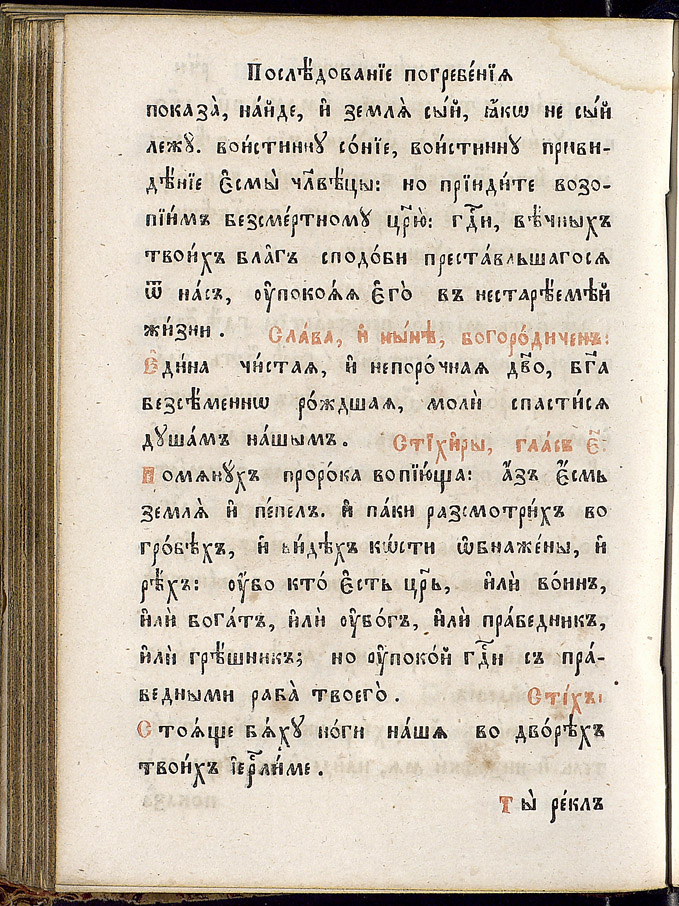 Послѣ́дованїе погребе́нїѧ
показа̀, на́йде, и҆ землѧ̀ сы́й, ꙗ҆́кѡ не сы́й
лежꙋ̀. вои́стиннꙋ со́нїе, вои́стиннꙋ приви-
дѣ́нїе є҆смы̀ чл҃вѣ́цы: но прїиди́те возо-
пїи́мъ безсме́ртномꙋ цр҃ю̀: гдⷭ҇и, вѣ́чныхъ
твои́хъ бла́гъ сподо́би преста́вльшагосѧ
ѿ на́съ, оу҆поко́ѧѧ є҆го̀ въ нестарѣ́емѣй
жи́зни. Сла́ва, и҆ ны́нѣ, богоро́диченъ:
Є҆ди́на чи́стаѧ, и҆ непоро́чнаѧ дв҃о, бг҃а
безсѣ́меннѡ ро́ждшаѧ, молѝ спасти́сѧ
дꙋша́мъ на́шымъ. Стїхи̑ры, гла́съ є҃:
Помѧнꙋ́хъ проро́ка вопїю́ща: а҆́зъ є҆́смь
землѧ̀ и҆ пе́пелъ. и҆ па́ки разсмотри́хъ во
гро́бѣхъ, и҆ ви́дѣхъ кѡ́сти ѡ҆бнаже́ны, и҆
рѣ́хъ: оу҆̀бо кто̀ є҆́сть цр҃ь, и҆лѝ во́инъ,
и҆лѝ бога́тъ, и҆лѝ оу҆бо́гъ, и҆лѝ пра́ведникъ,
и҆лѝ грѣ́шникъ; но оу҆поко́й гдⷭ҇и съ пра́-
ведными раба̀ твоего̀. Сті́хъ:
Стоѧ́ще бѧ́хꙋ но́ги на́шѧ во дво́рѣхъ
твои́хъ і҆ерⷭ҇ли́ме.
Ты̀ ре́клъ